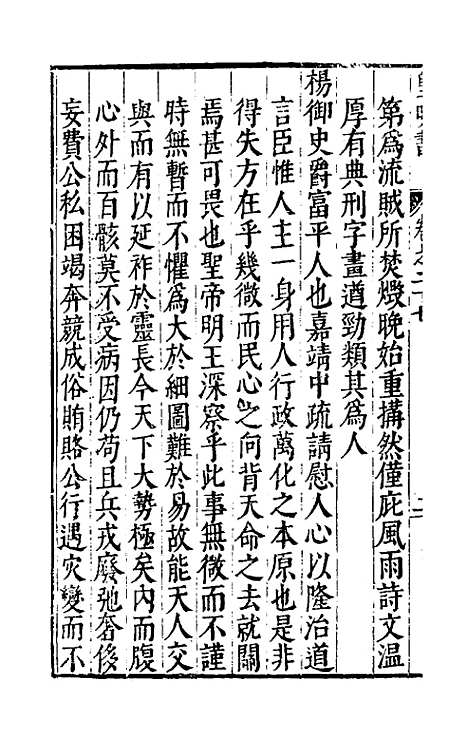 第爲流賊所焚燬晚始重搆然僅庇風雨詩文溫
厚有典刑字畫遒勁類其爲人
楊御史爵富平人也嘉靖中疏請慰人心以隆治道
言臣惟人主一身用人行政萬化之本原也是非
得失方在乎幾微而民心之向背天命之去就關
焉甚可畏也聖帝明王深察乎此事無微而不謹
時無暫而不懼爲大於細圖難於易故能天人交
與而有以延祚於靈長今天下大勢極矣內而腹
心外而百骸莫不受病因仍苟且兵戎廢弛奢侈
妄費公私困竭奔競成俗賄賂公行遇灾變而不